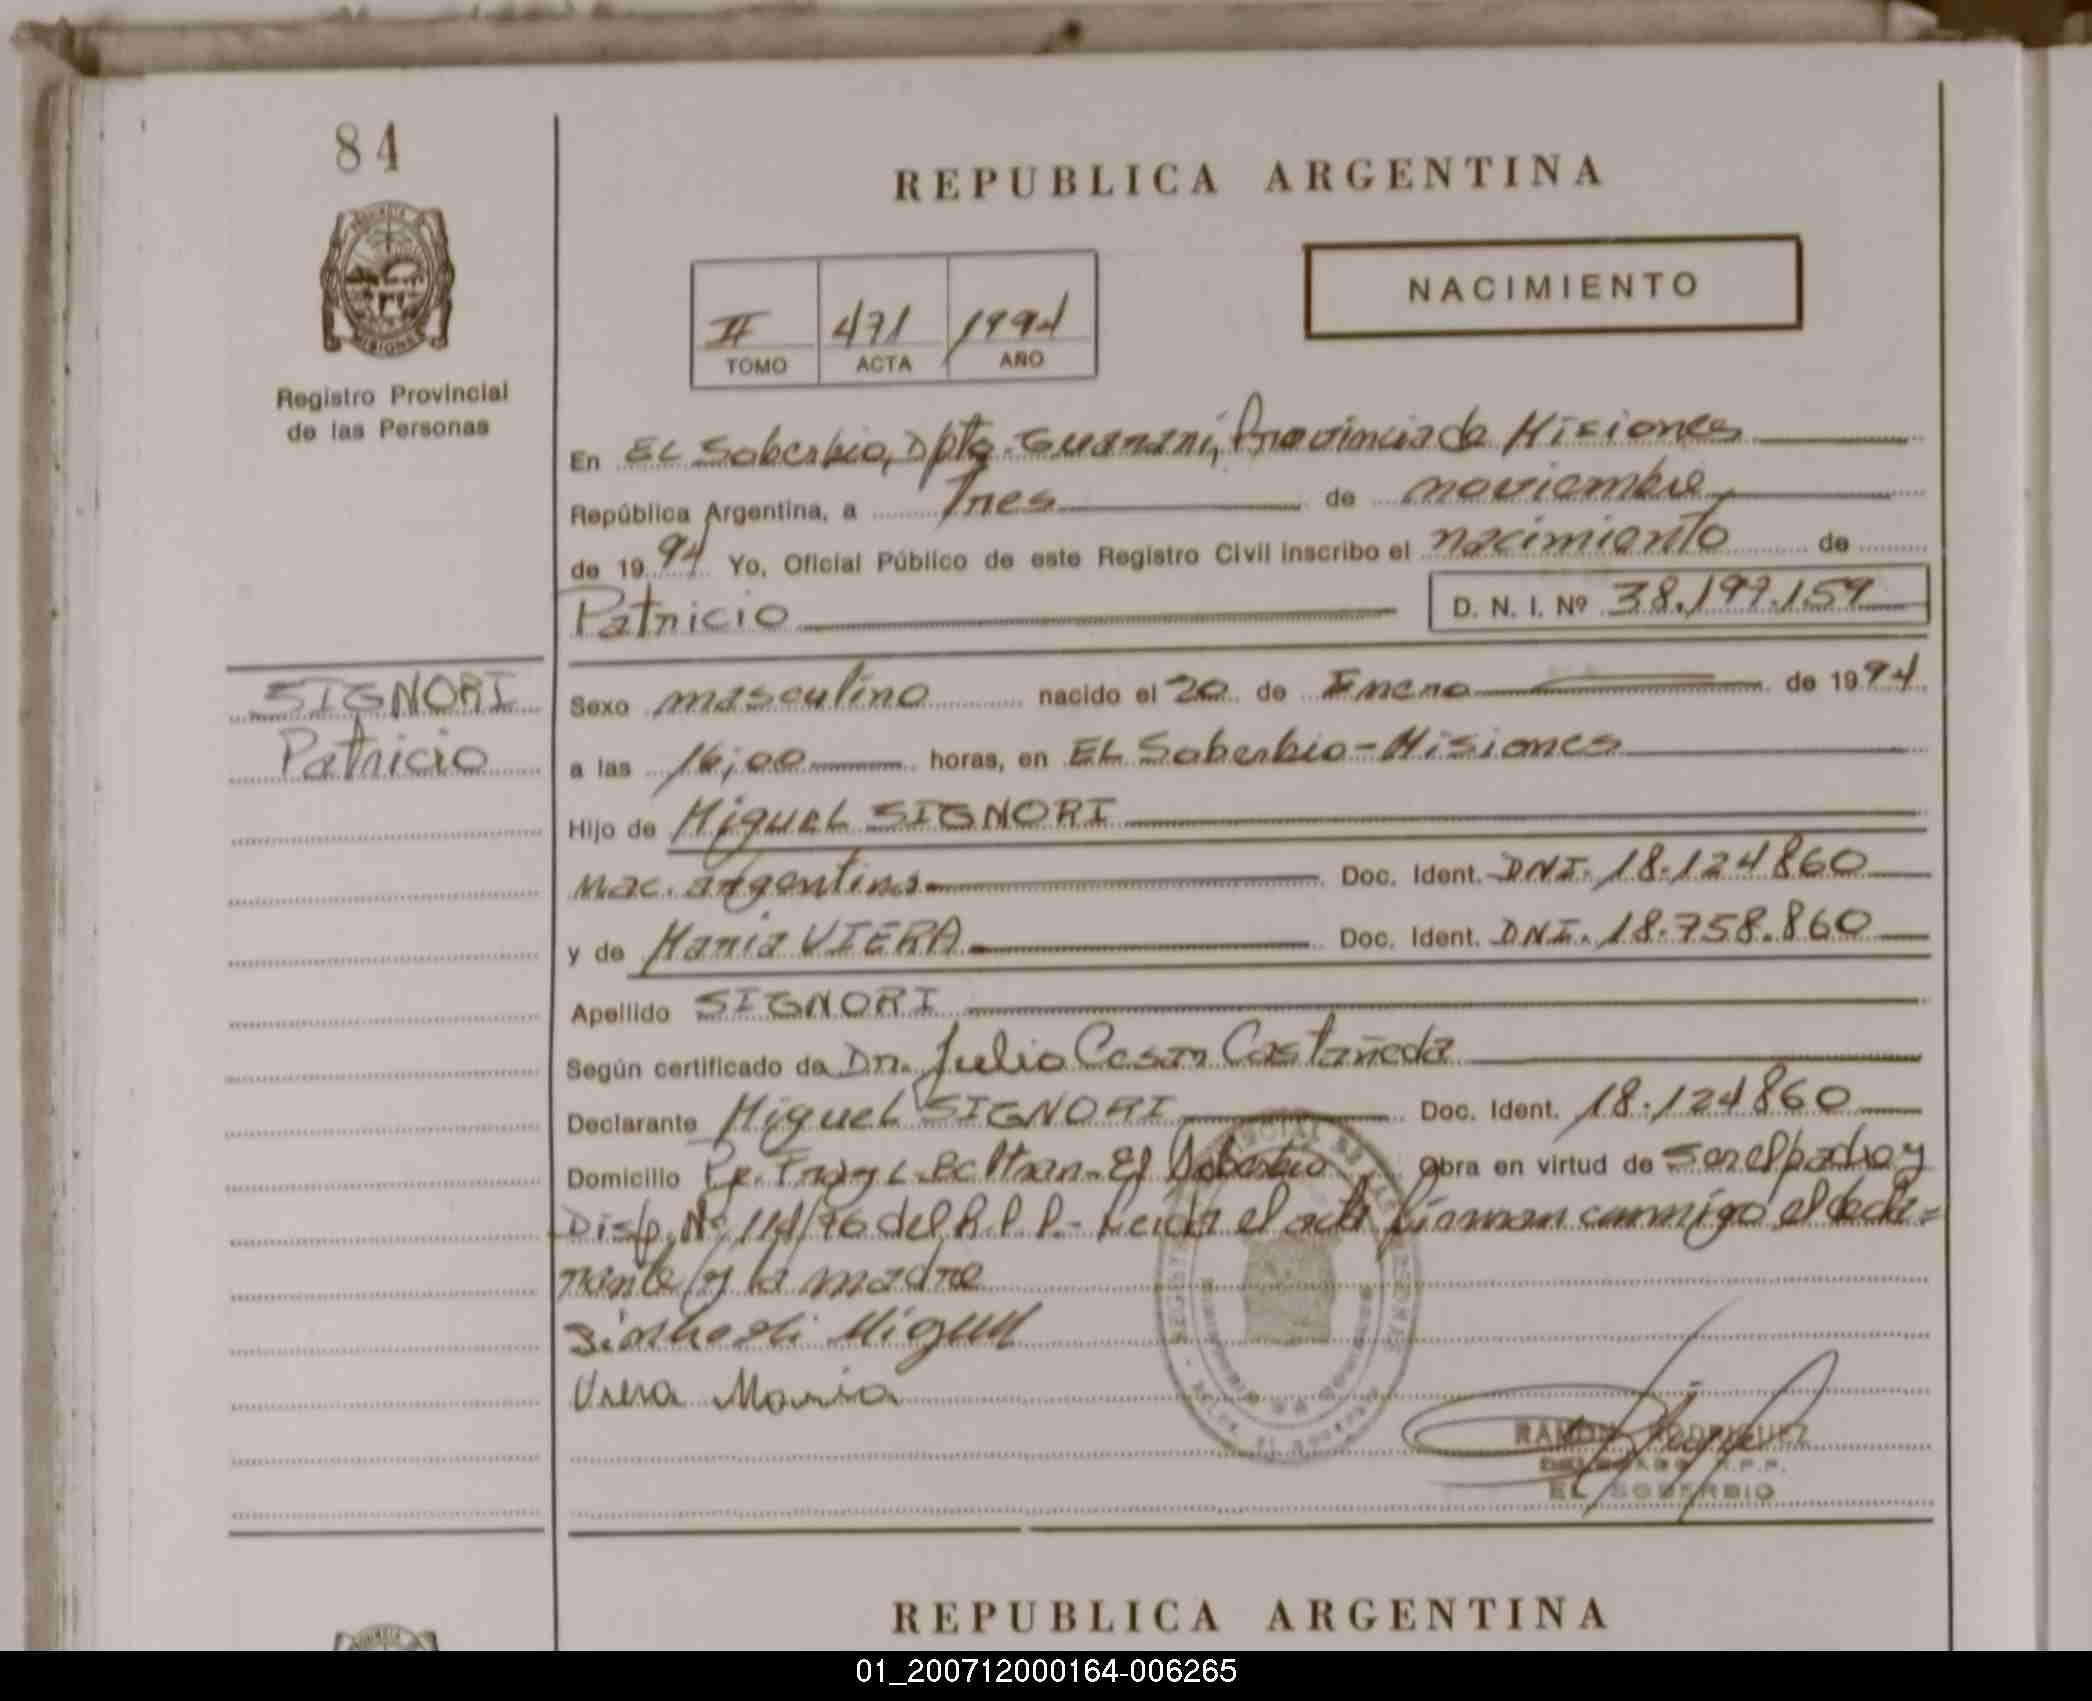 84
REPUBLICA ARGENTINA
NACIMIENTO
II 471 1994
TOMO ACTA AÑO
Registro Provincial
de las Personas
En EL Soberbio, Dpto. Guarani, Provincia de Misiones
República Argentina, a Tres de noviembre
de 1994 Yo, Oficial Público de este Registro Civil inscribo el nacimiento de
Patricio D. N. I. Nº 38.197.159
SIGNORI
Patricio
Sexo masculino nacido el 20 de Enero de 1994
a las 16,00 horas, en EL Soberbio - Misiones
Hijo de Miguel SIGNORI
Nac. argentina Doc. Ident. DNI. 18.124860
y de Maria VIERA Doc. Ident. DNI. 18.758.860
Apellido SIGNORI
Según certificado de Dr. Julio Cesar Castañeda
Declarante Miguel SIGNORI Doc. Ident. 18.124860
Domicilio Fray L. Beltran - El Soberbio Obra en virtud de ser el padre y
Disp. Nº 114/76 del R.P.P. - Leida el acta firman conmigo el decla=
rante y la madre
Miguel
Viera Maria
RAMON RODRIGUEZ
DELEGADO R.P.P.
EL SOBERBIO
REPUBLICA ARGENTINA
01_200712000164-006265